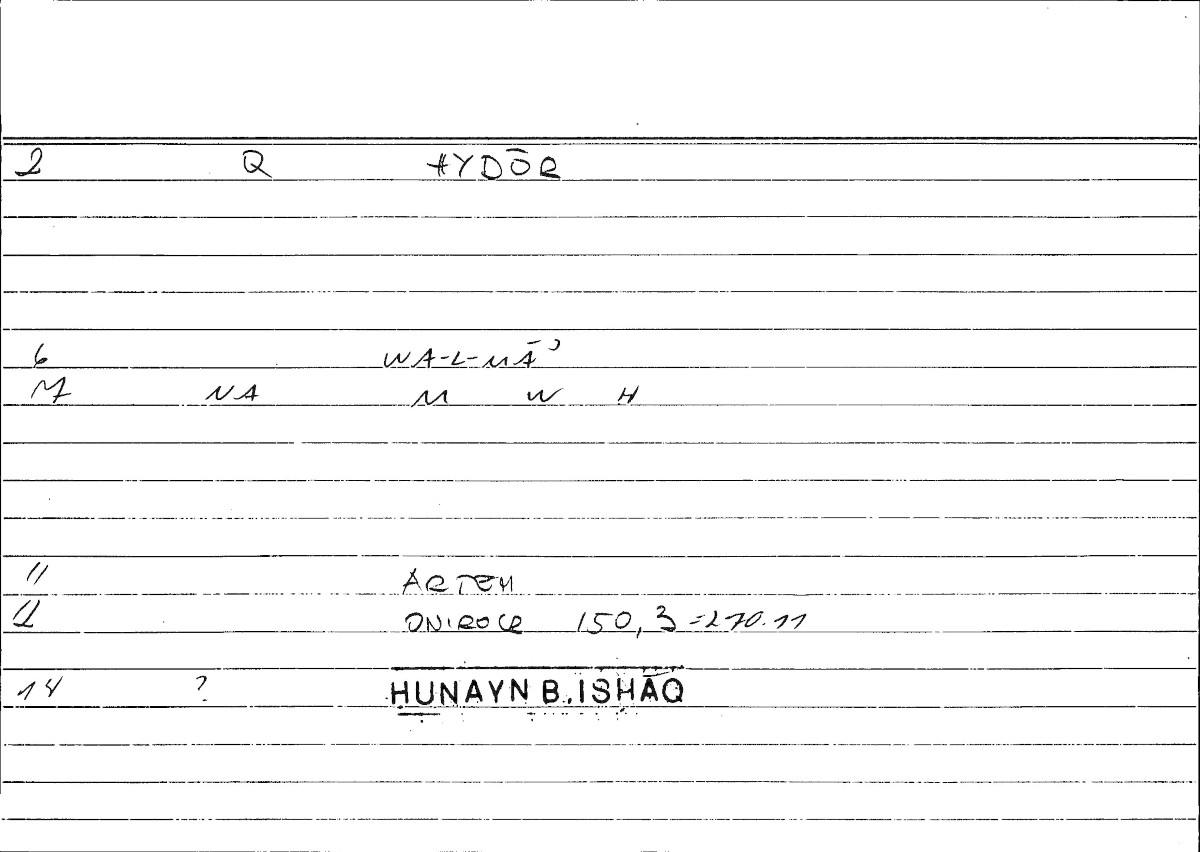 2 Q HYDŌR
6 WA-L-MĀʾ
M NA M W H
11 ARTEM
12 ONIROCR 150,3=270.11
14 ? HUNAYN B. ISHĀQ